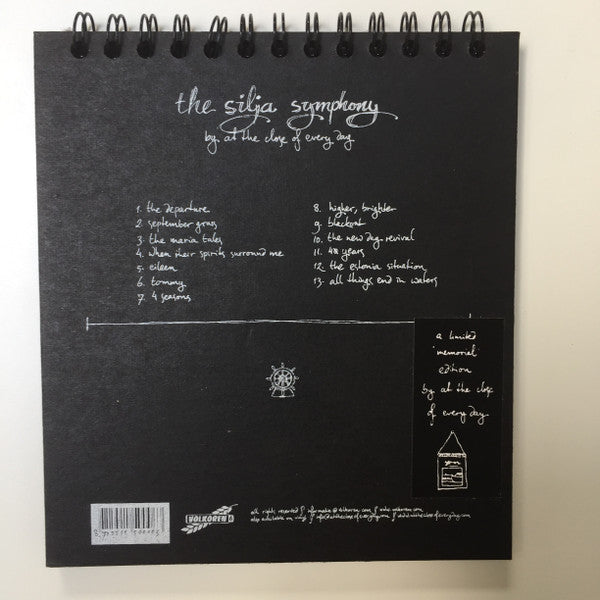 the silja symphony
by at the close of every day
1. the departure
2. september grass
3. the maria tales
4. when their spirits surround me
5. eileen
6. tommy
7. 4 seasons
8. higher, brighter
9. blackout
10. the new day revival
11. 48 years
12. the estonia situation
13. all things end in waters
a limited
'memorial'
edition
by at the close
of every day
VOLKOREN
all rights reserved
also available on vinyl